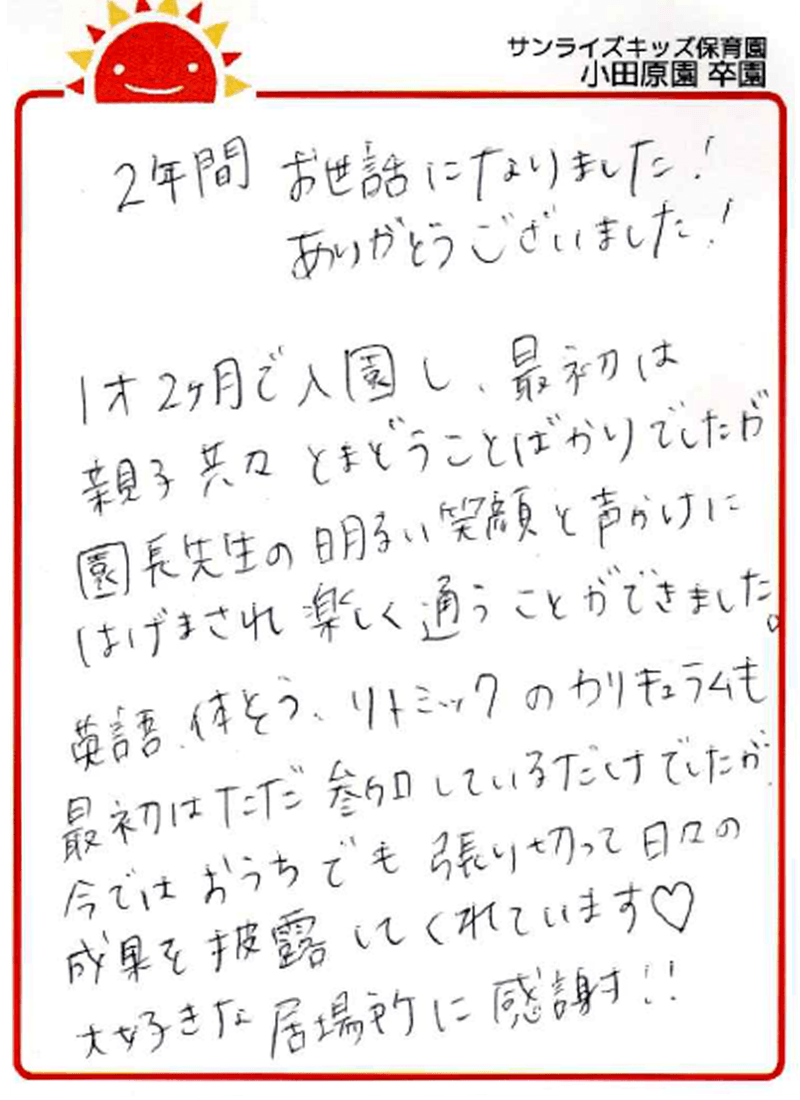 サンライズキッズ保育園
小田原園 卒園
2年間 お世話になりました!
ありがとうございました!
1才2ヶ月で入園し、最初は
親子共々とまどうことばかりでしたが
園長先生の明るい笑顔と声かけに
はげまされ楽しく通うことができました。
英語、体そう、リトミックのカリキュラムも
最初はただ参加しているだけでしたが、
今ではおうちでも張り切って日々の
成果を披露してくれています♡
大好きな居場所に感謝!!